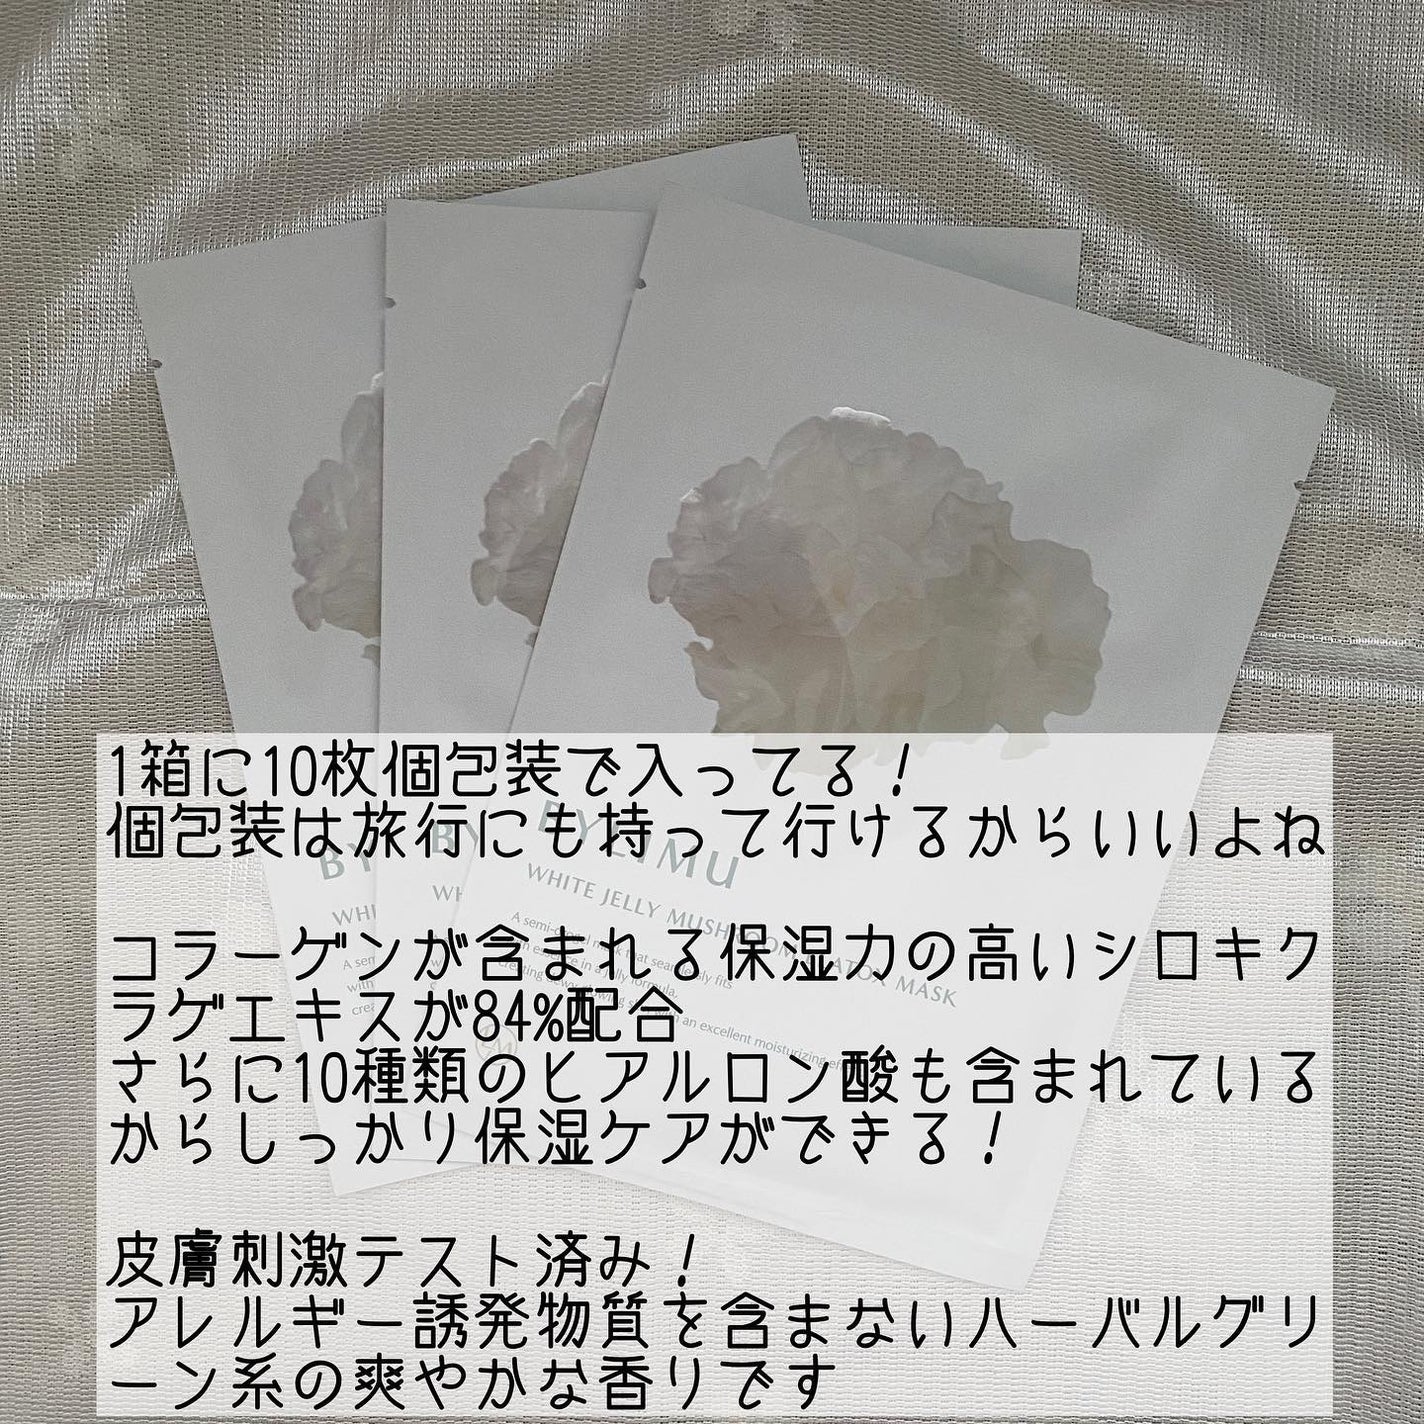 1箱に10枚個包装で入ってる！
個包装は旅行にも持って行けるからいいよね
コラーゲンが含まれる保湿力の高いシロキク
ラゲエキスが84%配合
さらに10種類のヒアルロン酸も含まれている
からしっかり保湿ケアができる！
皮膚刺激テスト済み！
アレルギー誘発物質を含まないハーバルグリ
ーン系の爽やかな香りです
BYLIMU
WHITE JELLY MUSHROOM
MASK
A semi-
that seamlessly fits
essence in a jelly formula,
with an excellent moisturizing
BY
WH
A sen
with
crea
BY
WH